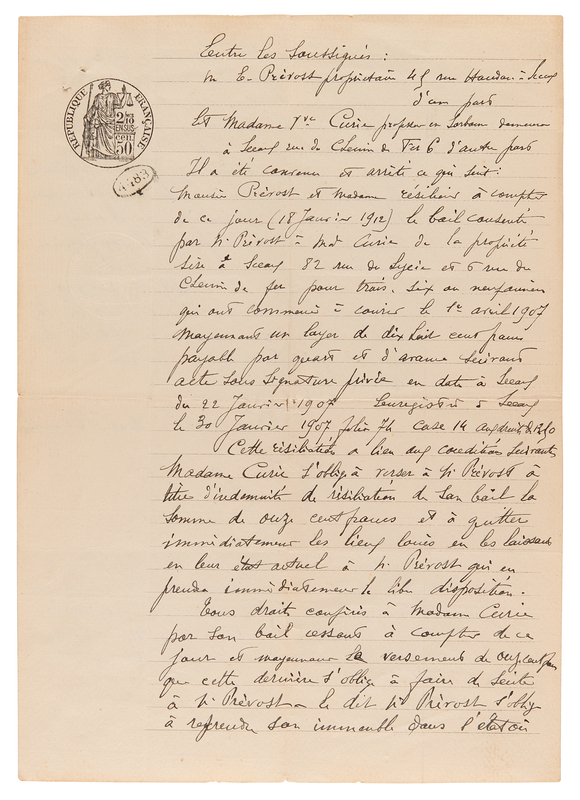 RÉPUBLIQUE FRANÇAISE
2/10
EN SUS
50 CEN
4483
Entre les Soussignés :
M E. Prévost propriétaire 45 rue Houdan à Sceaux
d'une part
Et Madame Vve Curie professeur en Sorbonne demeurant
à Sceaux rue du Chemin de Fer 6 d'autre part
Il a été convenu et arrêté ce qui suit :
Monsieur Prévost et Madame résilient à compter
de ce jour (18 Janvier 1912) le bail consenti
par M. Prévost à Md Curie de la propriété
sise à Sceaux 82 rue du Lycée et 6 rue du
Chemin de fer pour trois, six ou neuf années
qui ont commencé à courir le 1er avril 1907
moyennant un loyer de dix huit cent francs
payable par quart et d'avance suivant
acte sous signature privée en date à Sceaux
du 22 Janvier 1907 Enregistré à Sceaux
le 30 Janvier 1907 folio 74 case 14 aux droits de
Cette résiliation a lieu aux conditions suivantes
Madame Curie s'oblige à verser à M. Prévost à
titre d'indemnité de résiliation de son bail la
somme de onze cent francs et à quitter
immédiatement les lieux loués en les laissant
en leur état actuel à M. Prévost qui en
prendra immédiatement la libre disposition.
Tous droits conférés à Madame Curie
par son bail cessant à compter de ce
jour et moyennant le versement de onze cent francs
que cette dernière s'oblige à faire de suite
à M. Prévost - le dit M. Prévost s'oblige
à reprendre son immeuble dans l'état où